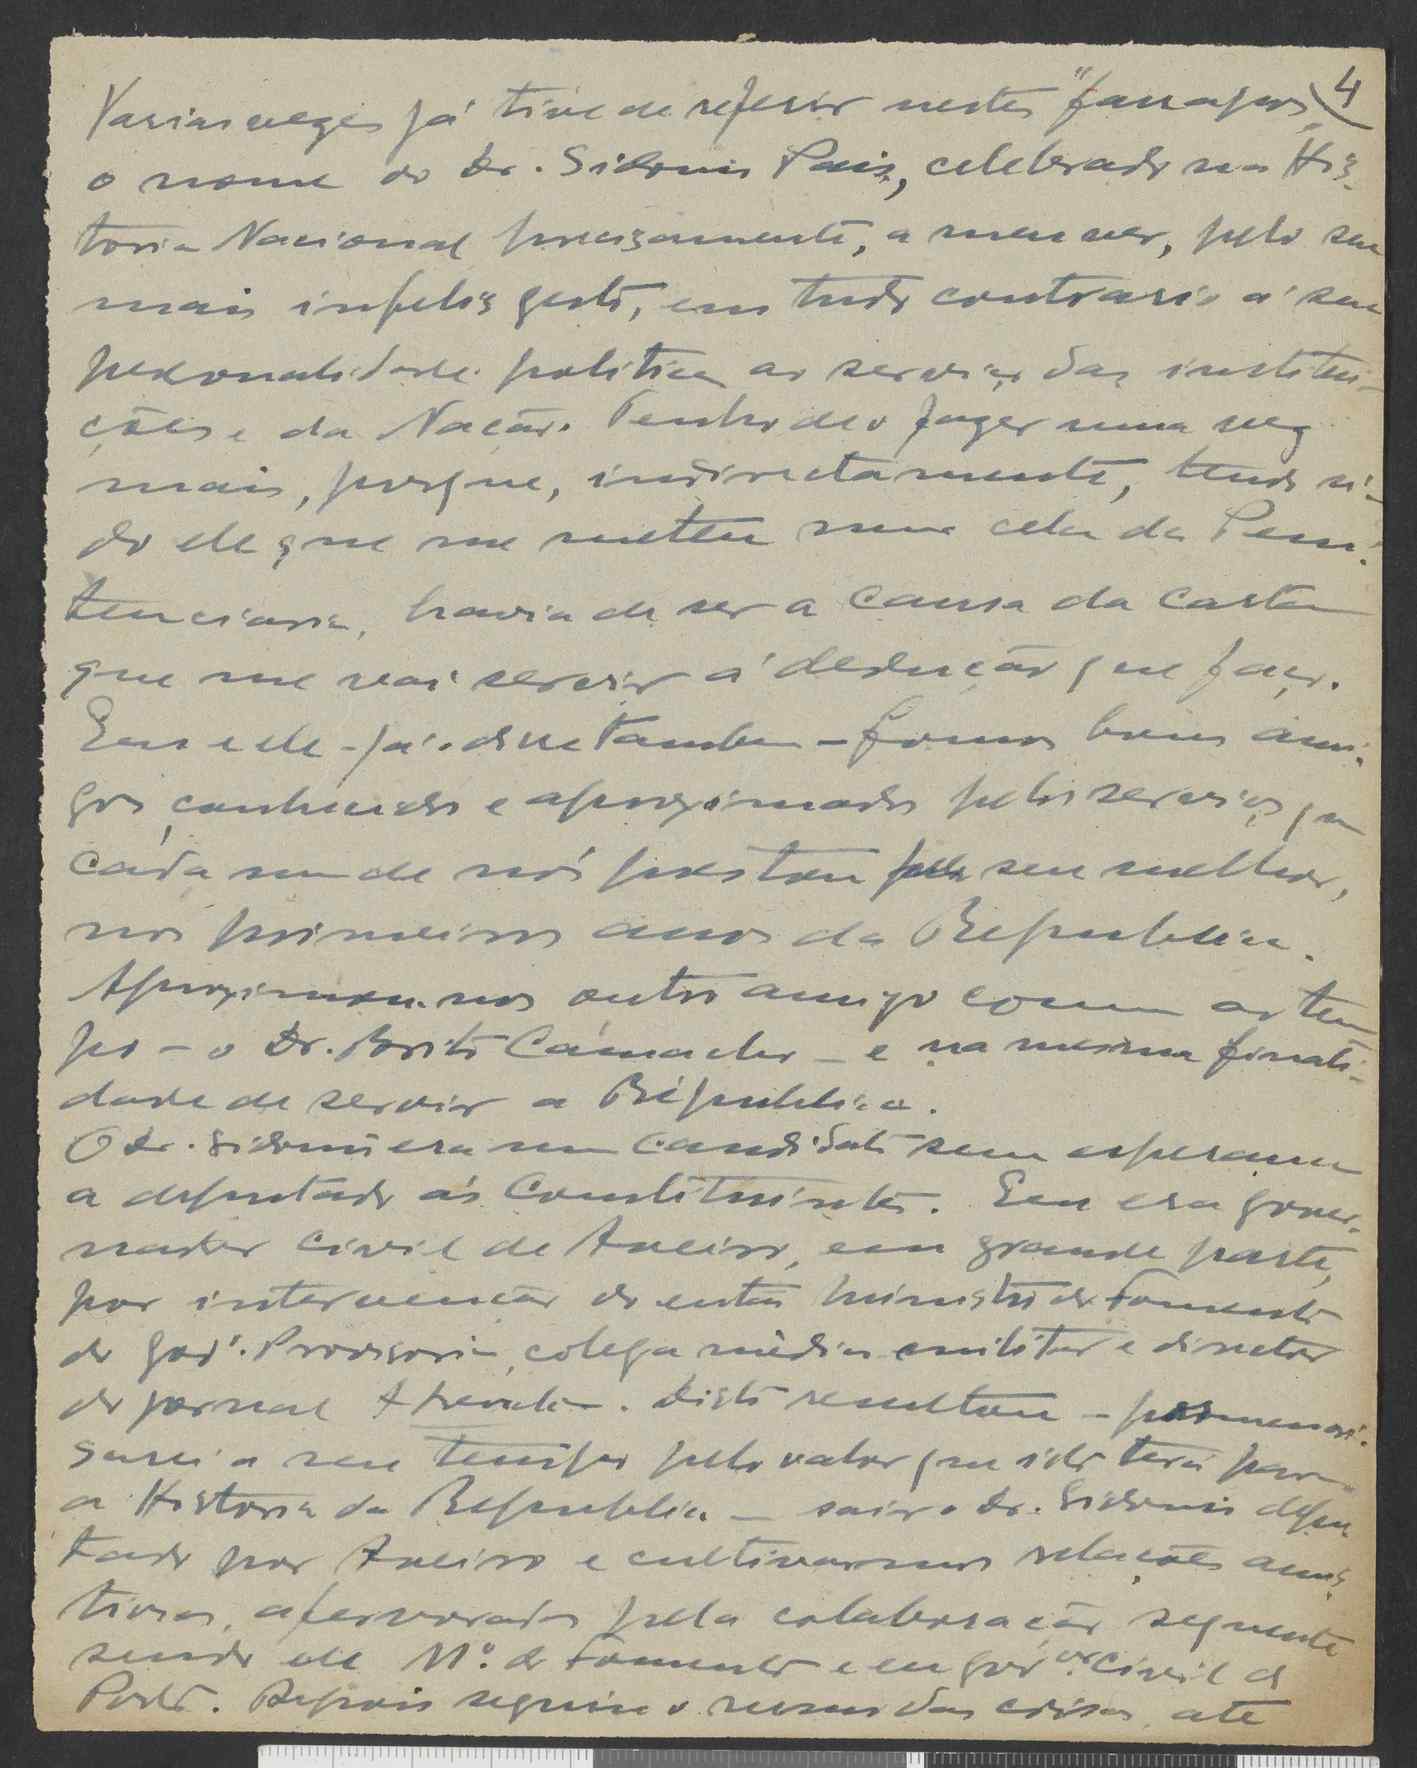 4
Varias vezes já tive de referir nestes "farrapos"
o nome do Dr. Sidonio Pais, celebrado na His-
toria Nacional precisamente, a meu ver, pelo seu
mais infeliz gesto, em tudo contrario á sua
personalidade politica ao serviço das institui-
ções e da Nação. Tenho de o fazer uma vez
mais, porque, indirectamente, tendo si-
do ele que me meteu numa cela da Peni-
tenciaria, havia de ser a causa da carta
que me vai servir á dedução que faço.
Eu e ele - já o disse tambem - fomos bons ami-
gos, conhecidos e aproximados pelos serviços que
cada um de nós prestou pelo seu melhor,
nos primeiros anos da Republica.
Aproximou-nos outro amigo comum ao tem
po - o Dr. Brito Camacho - e na mesma finali-
dade de servir a Républica.
O Dr. Sidonio era um candidato sem esperança
a deputado ás Constituintes. Eu era gover-
nador civil de Aveiro, em grande parte,
por intervenção do então ministro do Fomento
do Govº. Provisorio, colega médico militar e director
do jornal A Lucta. Disto resultou - pormenori-
sarei a seu tempo pelo valor que isto terá para
a Historia da Republica - sair o Dr. Sidonio depu
tado por Aveiro e cultivarmos relações amis-
tosas, afervoradas pela colaboração seguente
sendo ele Mº. do Fomento e eu govor. civil do
Porto. Depois seguiu o rumo das coisas até